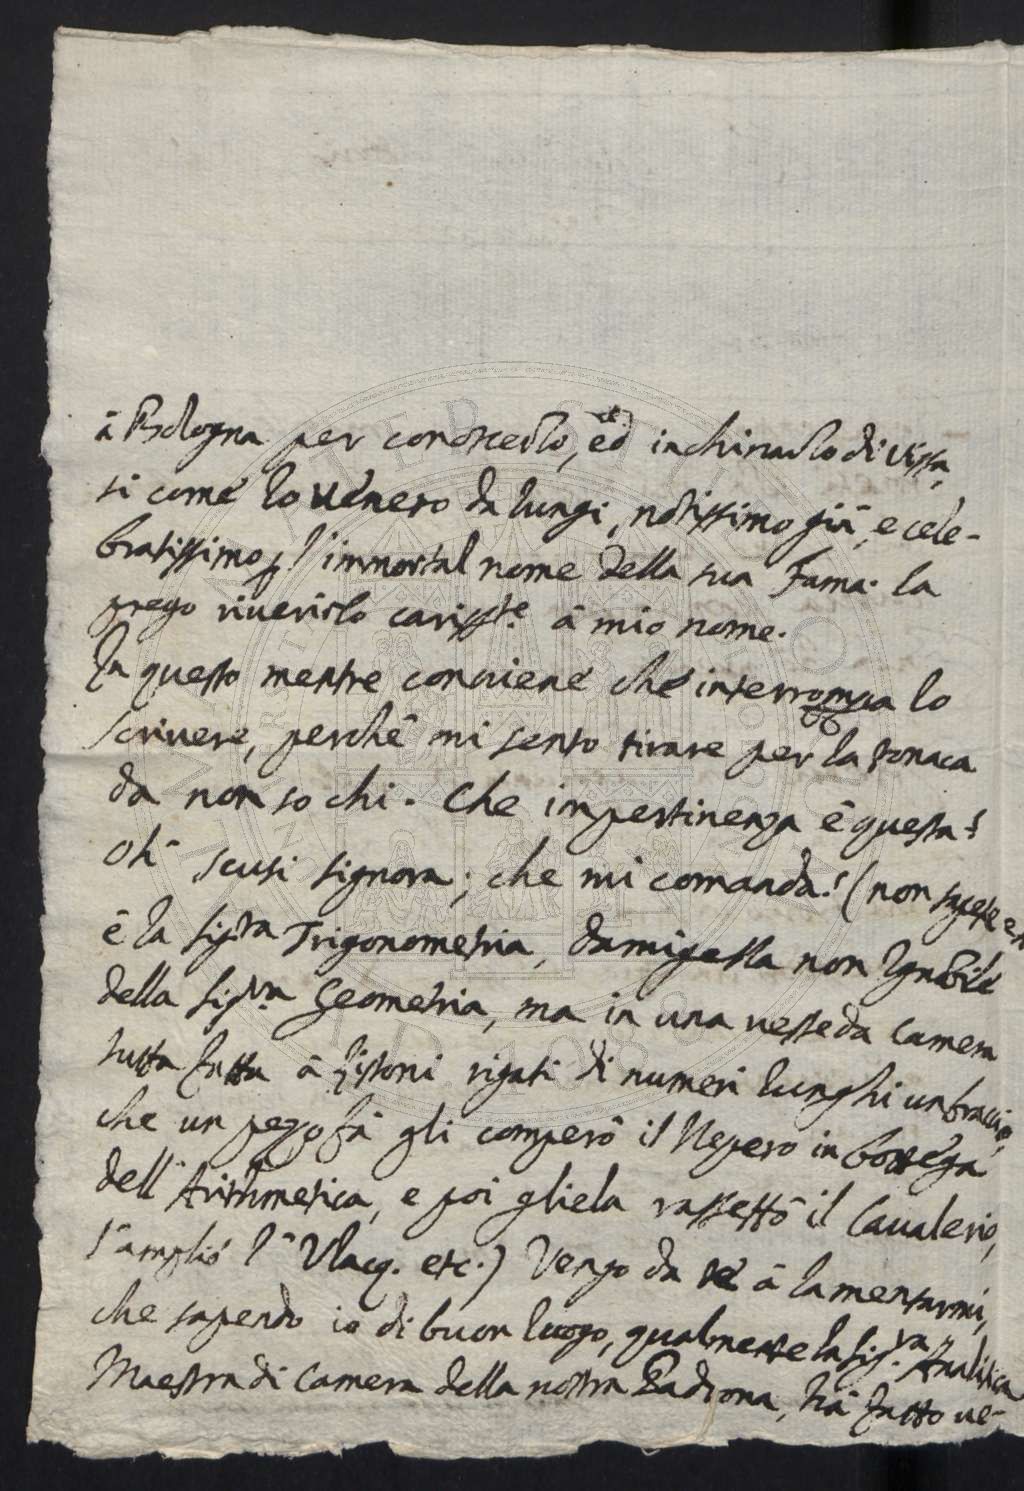 à Bologna per conoscerlo, ed inchinarlo di vista,
si come lo venero da lungi, notissimo già, e cele-
bratissimo p l'immortal nome della sua Fama. la
prego riverirlo cariss.te à mio nome.
In questo mentre conviene che interrompa lo
scrivere, perchè mi sento tirare per la tonaca
da non so chi. Che impertinenza è questa?
Oh scusi signora; che mi comanda? (non sapete
è la Sig.ra Trigonometria, damigella non Ignobile
della Sig.ra Geometria, ma in una veste da camera
tutta fatta à listoni rigati di numeri lunghi un braccio,
che un pezzo fà gli comperò il Nepero in bottega
dell'Arithmetica, e poi gliela rassettò il Cavalerio,
l'ampliò l' Vlacq. etc.) Vengo da te à lamentarmi,
che sapendo io di buon luogo, qualmente la Sig.ra Analitica
Maestra di Camera della nostra Padrona, hà fatto ve-